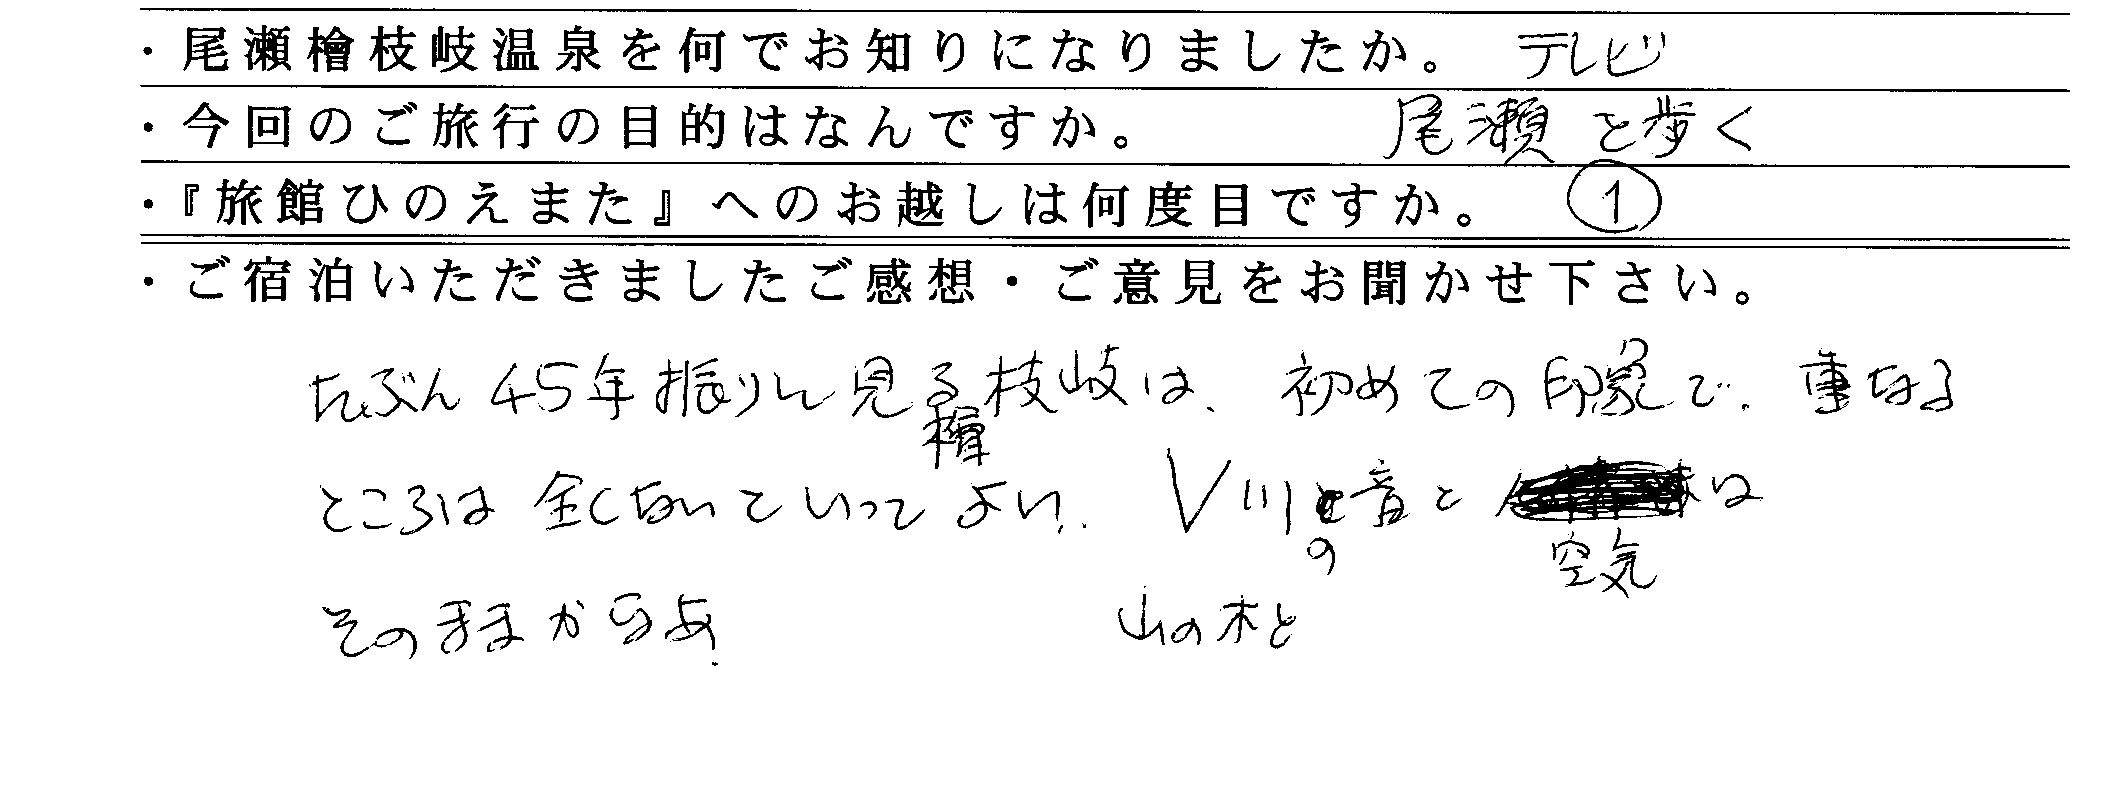 ・尾瀬檜枝岐温泉を何でお知りになりましたか。 テレビ
・今回のご旅行の目的はなんですか。 尾瀬を歩く
・『旅館ひのえまた』へのお越しは何度目ですか。 1
・ご宿泊いただきましたご感想・ご意見をお聞かせ下さい。
たぶん45年振りに見る檜枝岐は、初めての印象で、重なる
ところは全くないといってよい。 川の音と 空気は
山の木と
そのままかなあ